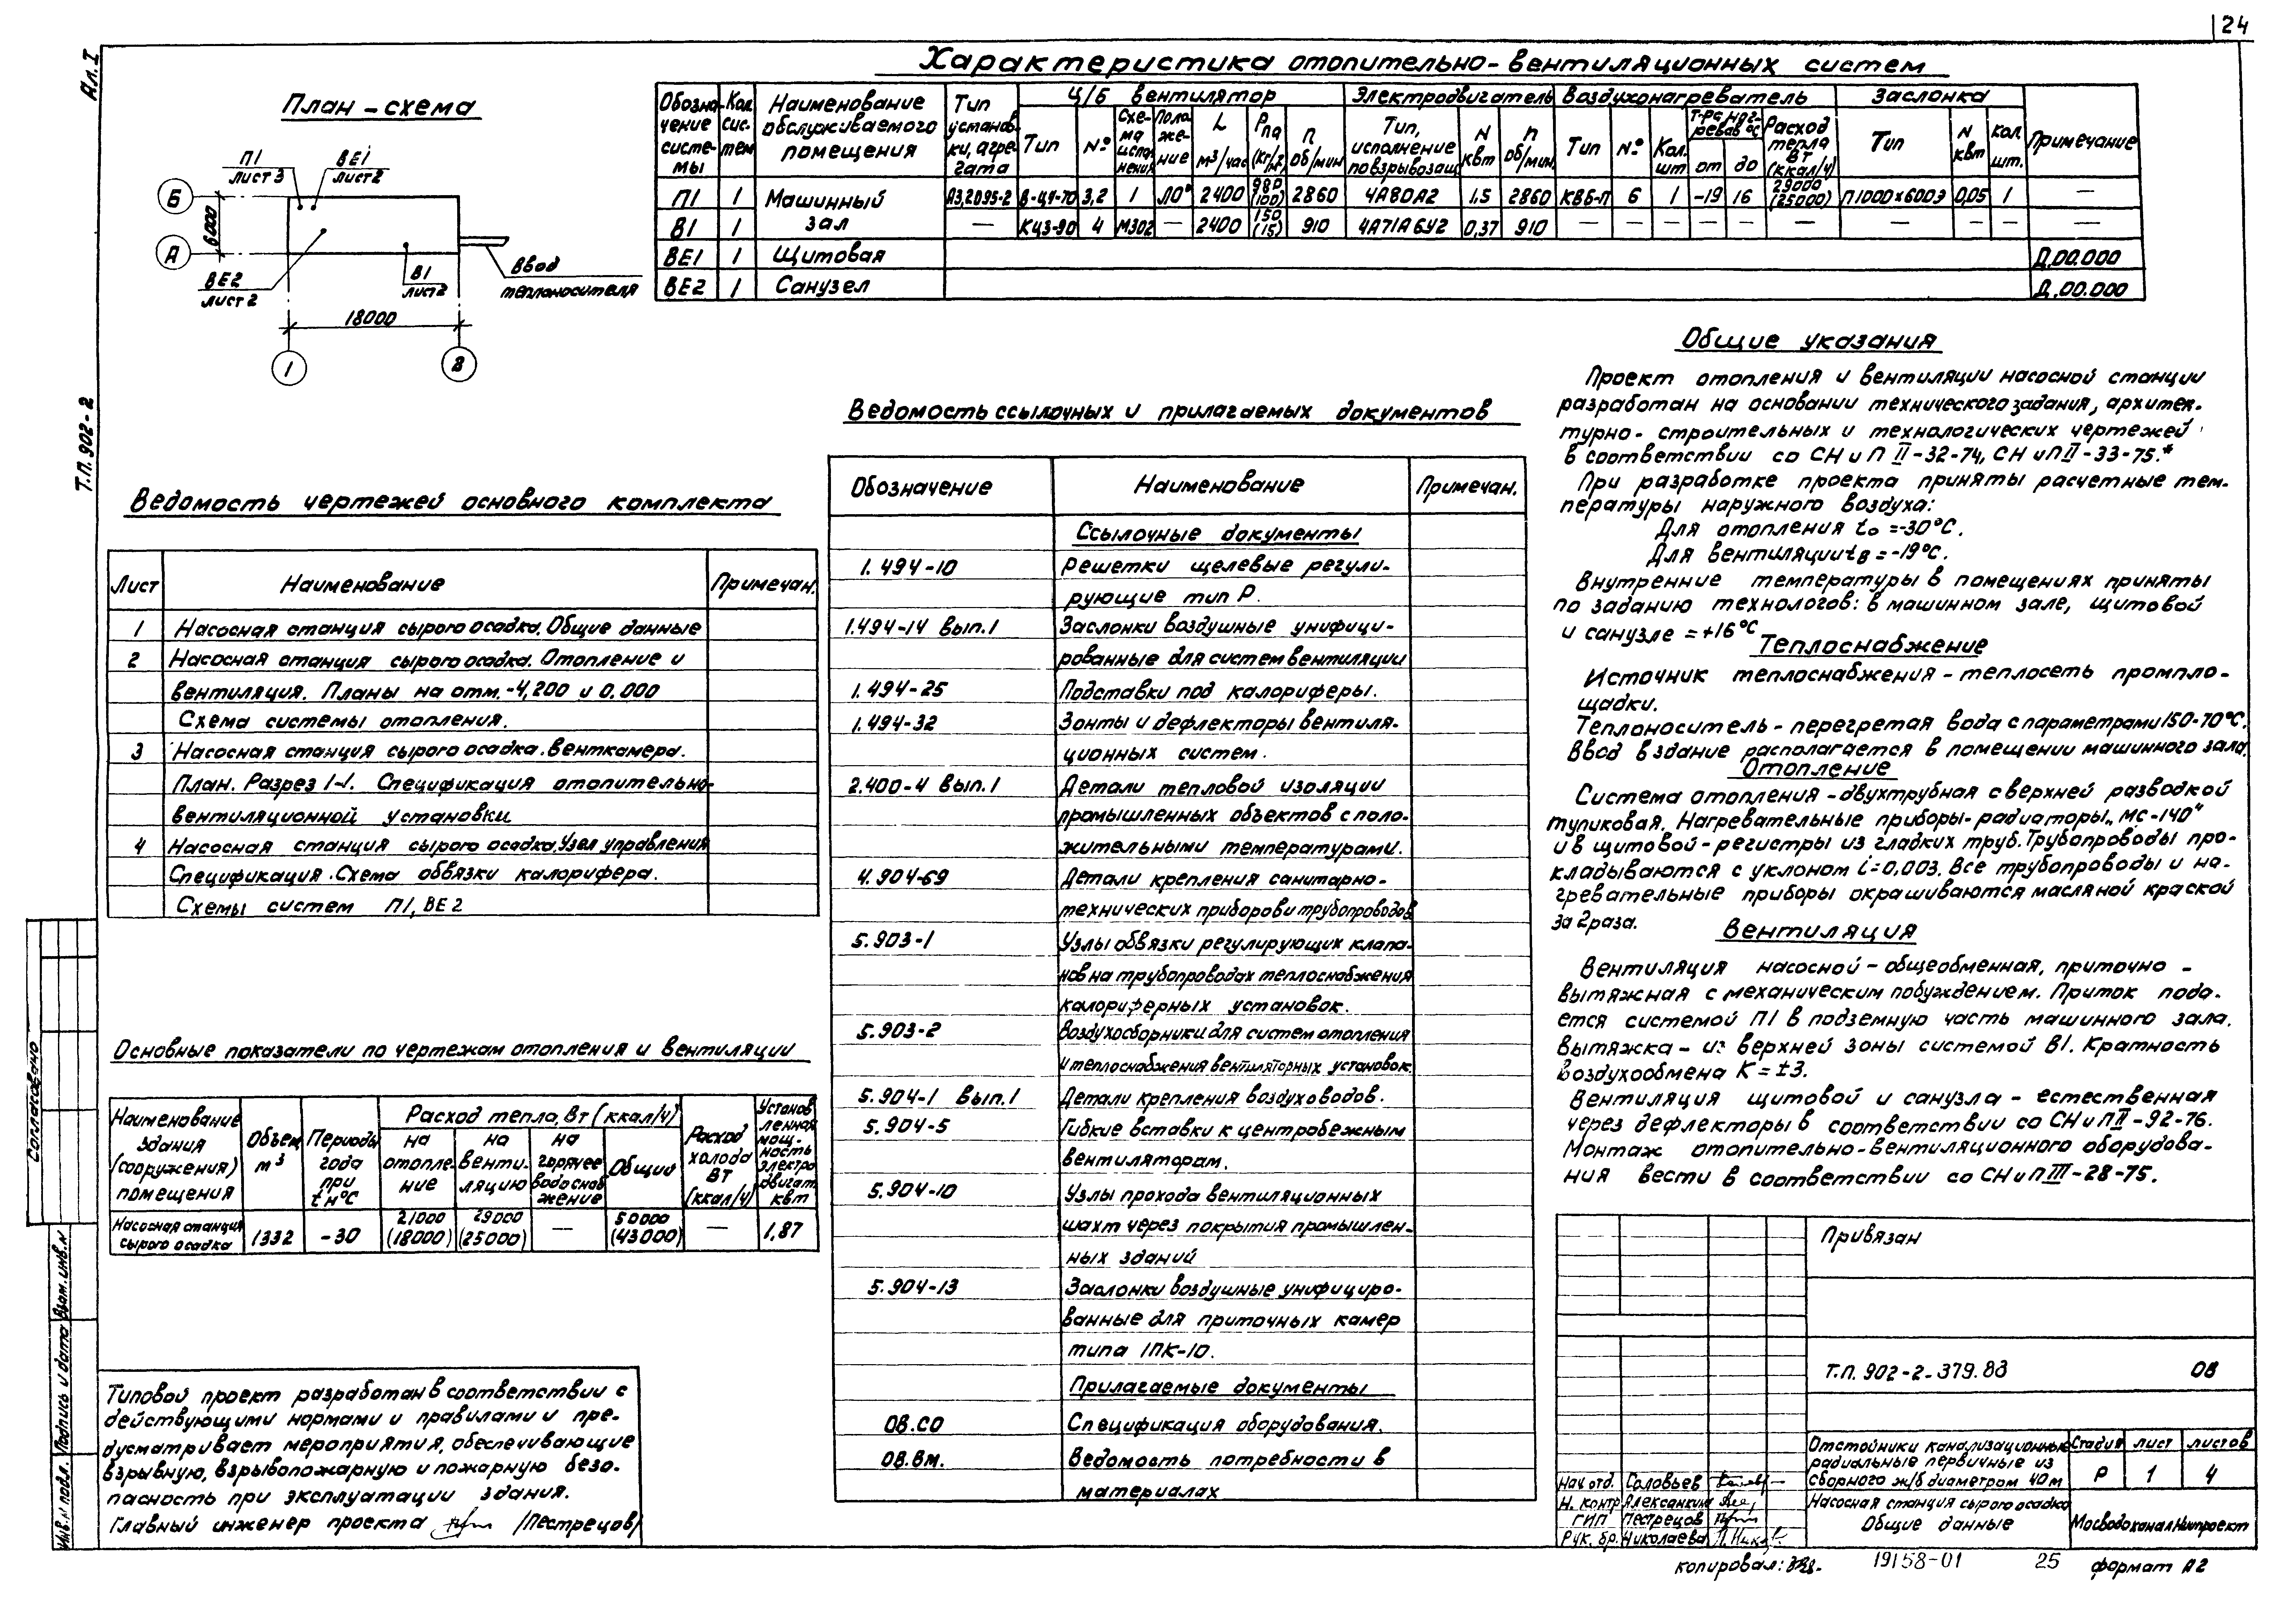 24
Ал. I
Т.П. 902-2
План-схема
П1
лист 3
ВЕ1
лист 2
Б
А
6000
ВЕ2
лист 2
В1
лист 2
Ввод
теплоносителя
18000
1
В
Характеристика отопительно-вентиляционных систем
Обозначение системы | Кол. систем | Наименование обслуживаемого помещения | Тип установки, агрегата | Ц/Б вентилятор | Электродвигатель | Воздухонагреватель | Заслонка | Примечание
Тип | № | Схема исполнения | Положение | L м³/час | Р па (кг/м²) | n об/мин | Тип, исполнение по взрывозащ. | N квт | n об/мин | Тип | № | Кол. шт | Т-ра нагрева °С от | до | Расход тепла Вт (ккал/ч) | Тип | N квт | кол. шт.
П1 | 1 | Машинный зал | А3,2095-2 | В-Ц4-70 | 3,2 | 1 | Л0° | 2400 | 980 (100) | 2860 | 4А80А2 | 1,5 | 2860 | КВБ-П | 6 | 1 | -19 | 16 | 29000 (25000) | П1000х600Э | 0,05 | 1 | —
В1 | 1 | — | КЦ3-90 | 4 | М302 | — | 2400 | 150 (15) | 910 | 4А71А6У2 | 0,37 | 910 | — | — | — | — | — | — | — | — | — | —
ВЕ1 | 1 | Щитовая | Д.00.000
ВЕ2 | 1 | Санузел | Д.00.000
Ведомость чертежей основного комплекта
Лист | Наименование | Примечан.
1 | Насосная станция сырого осадка. Общие данные
2 | Насосная станция сырого осадка. Отопление и
вентиляция. Планы на отм. -4,200 и 0.000
Схема системы отопления.
3 | Насосная станция сырого осадка. Венткамера.
План. Разрез 1-1. Спецификация отопительно-
вентиляционной установки
4 | Насосная станция сырого осадка. Узел управления
Спецификация. Схема обвязки калорифера.
Схемы систем П1, ВЕ2
Основные показатели по чертежам отопления и вентиляции
Наименование здания (сооружения) помещения | Объем м³ | Периоды года при tн°С | Расход тепла, Вт (ккал/ч) | Расход холода Вт (ккал/ч) | Установленная мощность электродвигат. квт
на отопление | на вентиляцию | на горячее водоснабжение | Общий
Насосная станция сырого осадка | 1332 | -30 | 21000 (18000) | 29000 (25000) | — | 50000 (43000) | — | 1,87
Типовой проект разработан в соответствии с
действующими нормами и правилами и пре-
дусматривает мероприятия, обеспечивающие
взрывную, взрывопожарную и пожарную безо-
пасность при эксплуатации здания.
Главный инженер проекта /Пестрецов/
Ведомость ссылочных и прилагаемых документов
Обозначение | Наименование | Примечан.
Ссылочные документы
1.494-10 | Решетки щелевые регули-
рующие тип Р.
1.494-14 Вып.1 | Заслонки воздушные унифици-
рованные для систем вентиляции
1.494-25 | Подставки под калориферы.
1.494-32 | Зонты и дефлекторы вентиля-
ционных систем.
2.400-4 Вып.1 | Детали тепловой изоляции
промышленных объектов с поло-
жительными температурами.
4.904-69 | Детали крепления санитарно-
технических приборов и трубопроводов
5.903-1 | Узлы обвязки регулирующих клапа-
нов на трубопроводах теплоснабжения
калориферных установок.
5.903-2 | Воздухосборники для систем отопления
и теплоснабжения вентиляторных установок
5.904-1 Вып.1 | Детали крепления воздуховодов.
5.904-5 | Гибкие вставки к центробежным
вентиляторам.
5.904-10 | Узлы прохода вентиляционных
шахт через покрытия промышлен-
ных зданий
5.904-13 | Заслонки воздушные унифициро-
ванные для приточных камер
типа 1ПК-10.
Прилагаемые документы
ОВ.СО | Спецификация оборудования.
ОВ.ВМ. | Ведомость потребности в
материалах
Общие указания
Проект отопления и вентиляции насосной станции
разработан на основании технического задания, архитек-
турно-строительных и технологических чертежей
в соответствии со СНиП II-32-74, СНиП II-33-75.*
При разработке проекта приняты расчетные тем-
пературы наружного воздуха:
Для отопления tо =-30°С.
Для вентиляции tв =-19°С.
Внутренние температуры в помещениях приняты
по заданию технологов: в машинном зале, щитовой
и санузле = +16°С
Теплоснабжение
Источник теплоснабжения - теплосеть промпло-
щадки.
Теплоноситель - перегретая вода с параметрами 150-70°С.
Ввод в здание располагается в помещении машинного зала.
Отопление
Система отопления - двухтрубная с верхней разводкой
тупиковая. Нагревательные приборы - радиаторы „МС-140"
и в щитовой - регистры из гладких труб. Трубопроводы про-
кладываются с уклоном i=0,003. Все трубопроводы и на-
гревательные приборы окрашиваются масляной краской
за 2 раза.
Вентиляция
Вентиляция насосной - общеобменная, приточно-
вытяжная с механическим побуждением. Приток пода-
ется системой П1 в подземную часть машинного зала.
Вытяжка - из верхней зоны системой В1. Кратность
воздухообмена К = ±3.
Вентиляция щитовой и санузла - естественная
через дефлекторы в соответствии со СНиП II-92-76.
Монтаж отопительно-вентиляционного оборудова-
ния вести в соответствии со СНиП III-28-75.
Привязан
Т.П. 902-2-379.83 ОВ
Отстойники канализационные
радиальные первичные из
сборного ж/б диаметром 40м
Стадия | лист | листов
Р | 1 | 4
Насосная станция сырого осадка
Общие данные
МосводоканалНИИпроект
Нач. отд. Соловьев
Н. контр Алексанкин
ГИП Пестрецов
Рук. бр. Николаева
Согласовано
Взам. инв. N
Подпись и дата
Инв. N подл.
копировал:
19158-01
25
формат А2